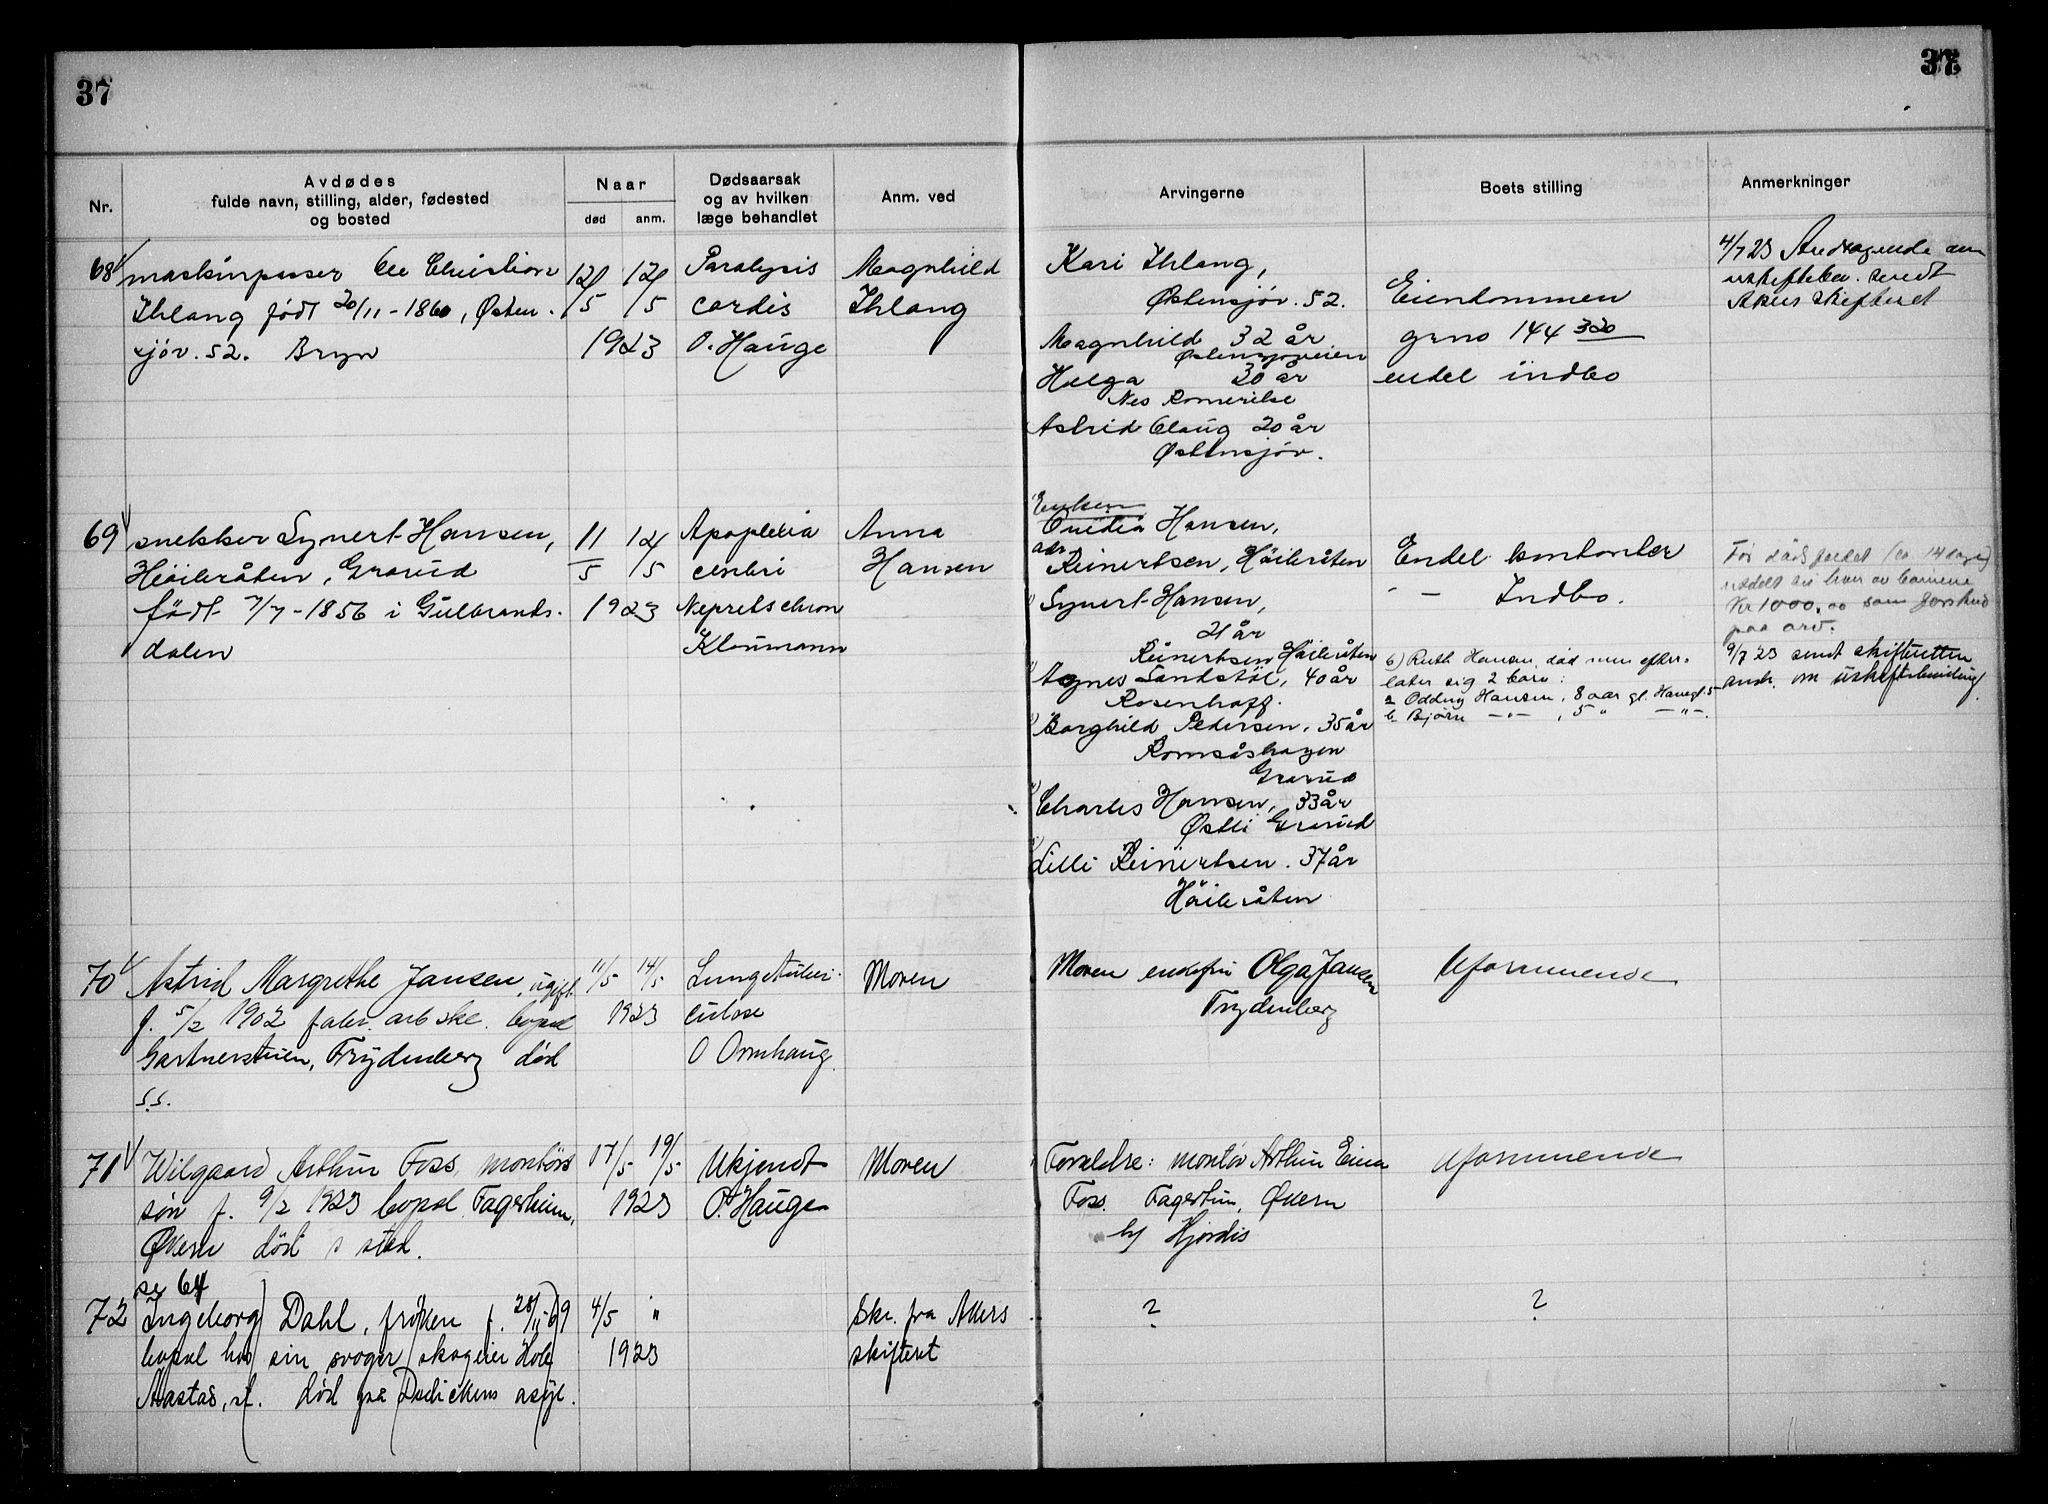 37
37
Nr.
Avdødes
fulde navn, stilling, alder, fødested
og bosted
Naar
død
anm.
Dødsaarsak
og av hvilken
læge behandlet
Anm. ved
Arvingerne
Boets stilling
Anmerkninger
68
maskinpasser Ole Christian
Ihlang født 20/11-1860, Østen-
sjøv. 52. Bryn
12/5 12/5
1923
Paralysis
cordis
O. Hauge
Magnhild
Ihlang
Kari Ihlang,
Østensjøv. 52.
Magnhild 32 år
Østensjøveien
Helga 30 år
Nes Romerike
Astrid Olaug 20 år
Østensjøv.
Eiendommen
grno 144 320
endel indbo
4/7 23 Andragende om
uskiftebev. sendt
Akers skifteret
69
snekker Synert Hansen,
Høibråten, Grorud
født 7/7-1856 i Gulbrands-
dalen
11/5 12/5
1923
Apoplexia
cerebri
Nephrit chron
Kloumann
Anna
Hansen
Enken
Hansen,
Reinertsen, Høibråten
Synert Hansen,
21 år
Reinertsen Høibråten
Agnes Sandstøl, 40 år
Rosenhoff.
Borghild Pedersen, 35 år
Romsåshagen
Grorud
Charles Hansen, 33 år
Østli Grorud
Lilli Reinertsen. 37 år
Høibråten
Endel kontanter
- " - Indbo.
6) Ruth Hansen, død men efter-
later sig 2 barn:
a Oddny Hansen, 8 aar gl.
b Bjørn -"- , 5 " -"-.
Før dødsfaldet (ca. 14 dage)
utdelt til hver av barnene
Kr 1000,00 som forskud
paa arv.
9/7 23 sendt skifteretten
andr. om uskiftebevilling
70
Astrid Margrethe Jansen, ugift
f. 5/2 1902 fabr. arbske. bopæl
Gartnerstuen, Frydenberg død
s.s.
11/5 14/5
1923
Lungetuber-
culose
O Ormhaug
Moren
Moren enkefru Olga Jansen
Frydenberg
Uformuende
71
Wilgaard Arthur Foss, montørs
søn f. 9/2 1923 bopæl Fagerheim,
Økern død s sted.
17/5 19/5
1923
Ukjendt
O. Hauge
Moren
Forældre: montør Arthur Einar
Foss. Fagerheim, Økern
h/ Hjørdis
Uformuende
se 64
72
Ingeborg Dahl, frøken f. 28/11-69
bopæl hos sin svoger skogeier Hole
Aastad, st. død paa Dedichens asyl.
4/5 "
1923
Skr. fra Akers
skifteret
?
?